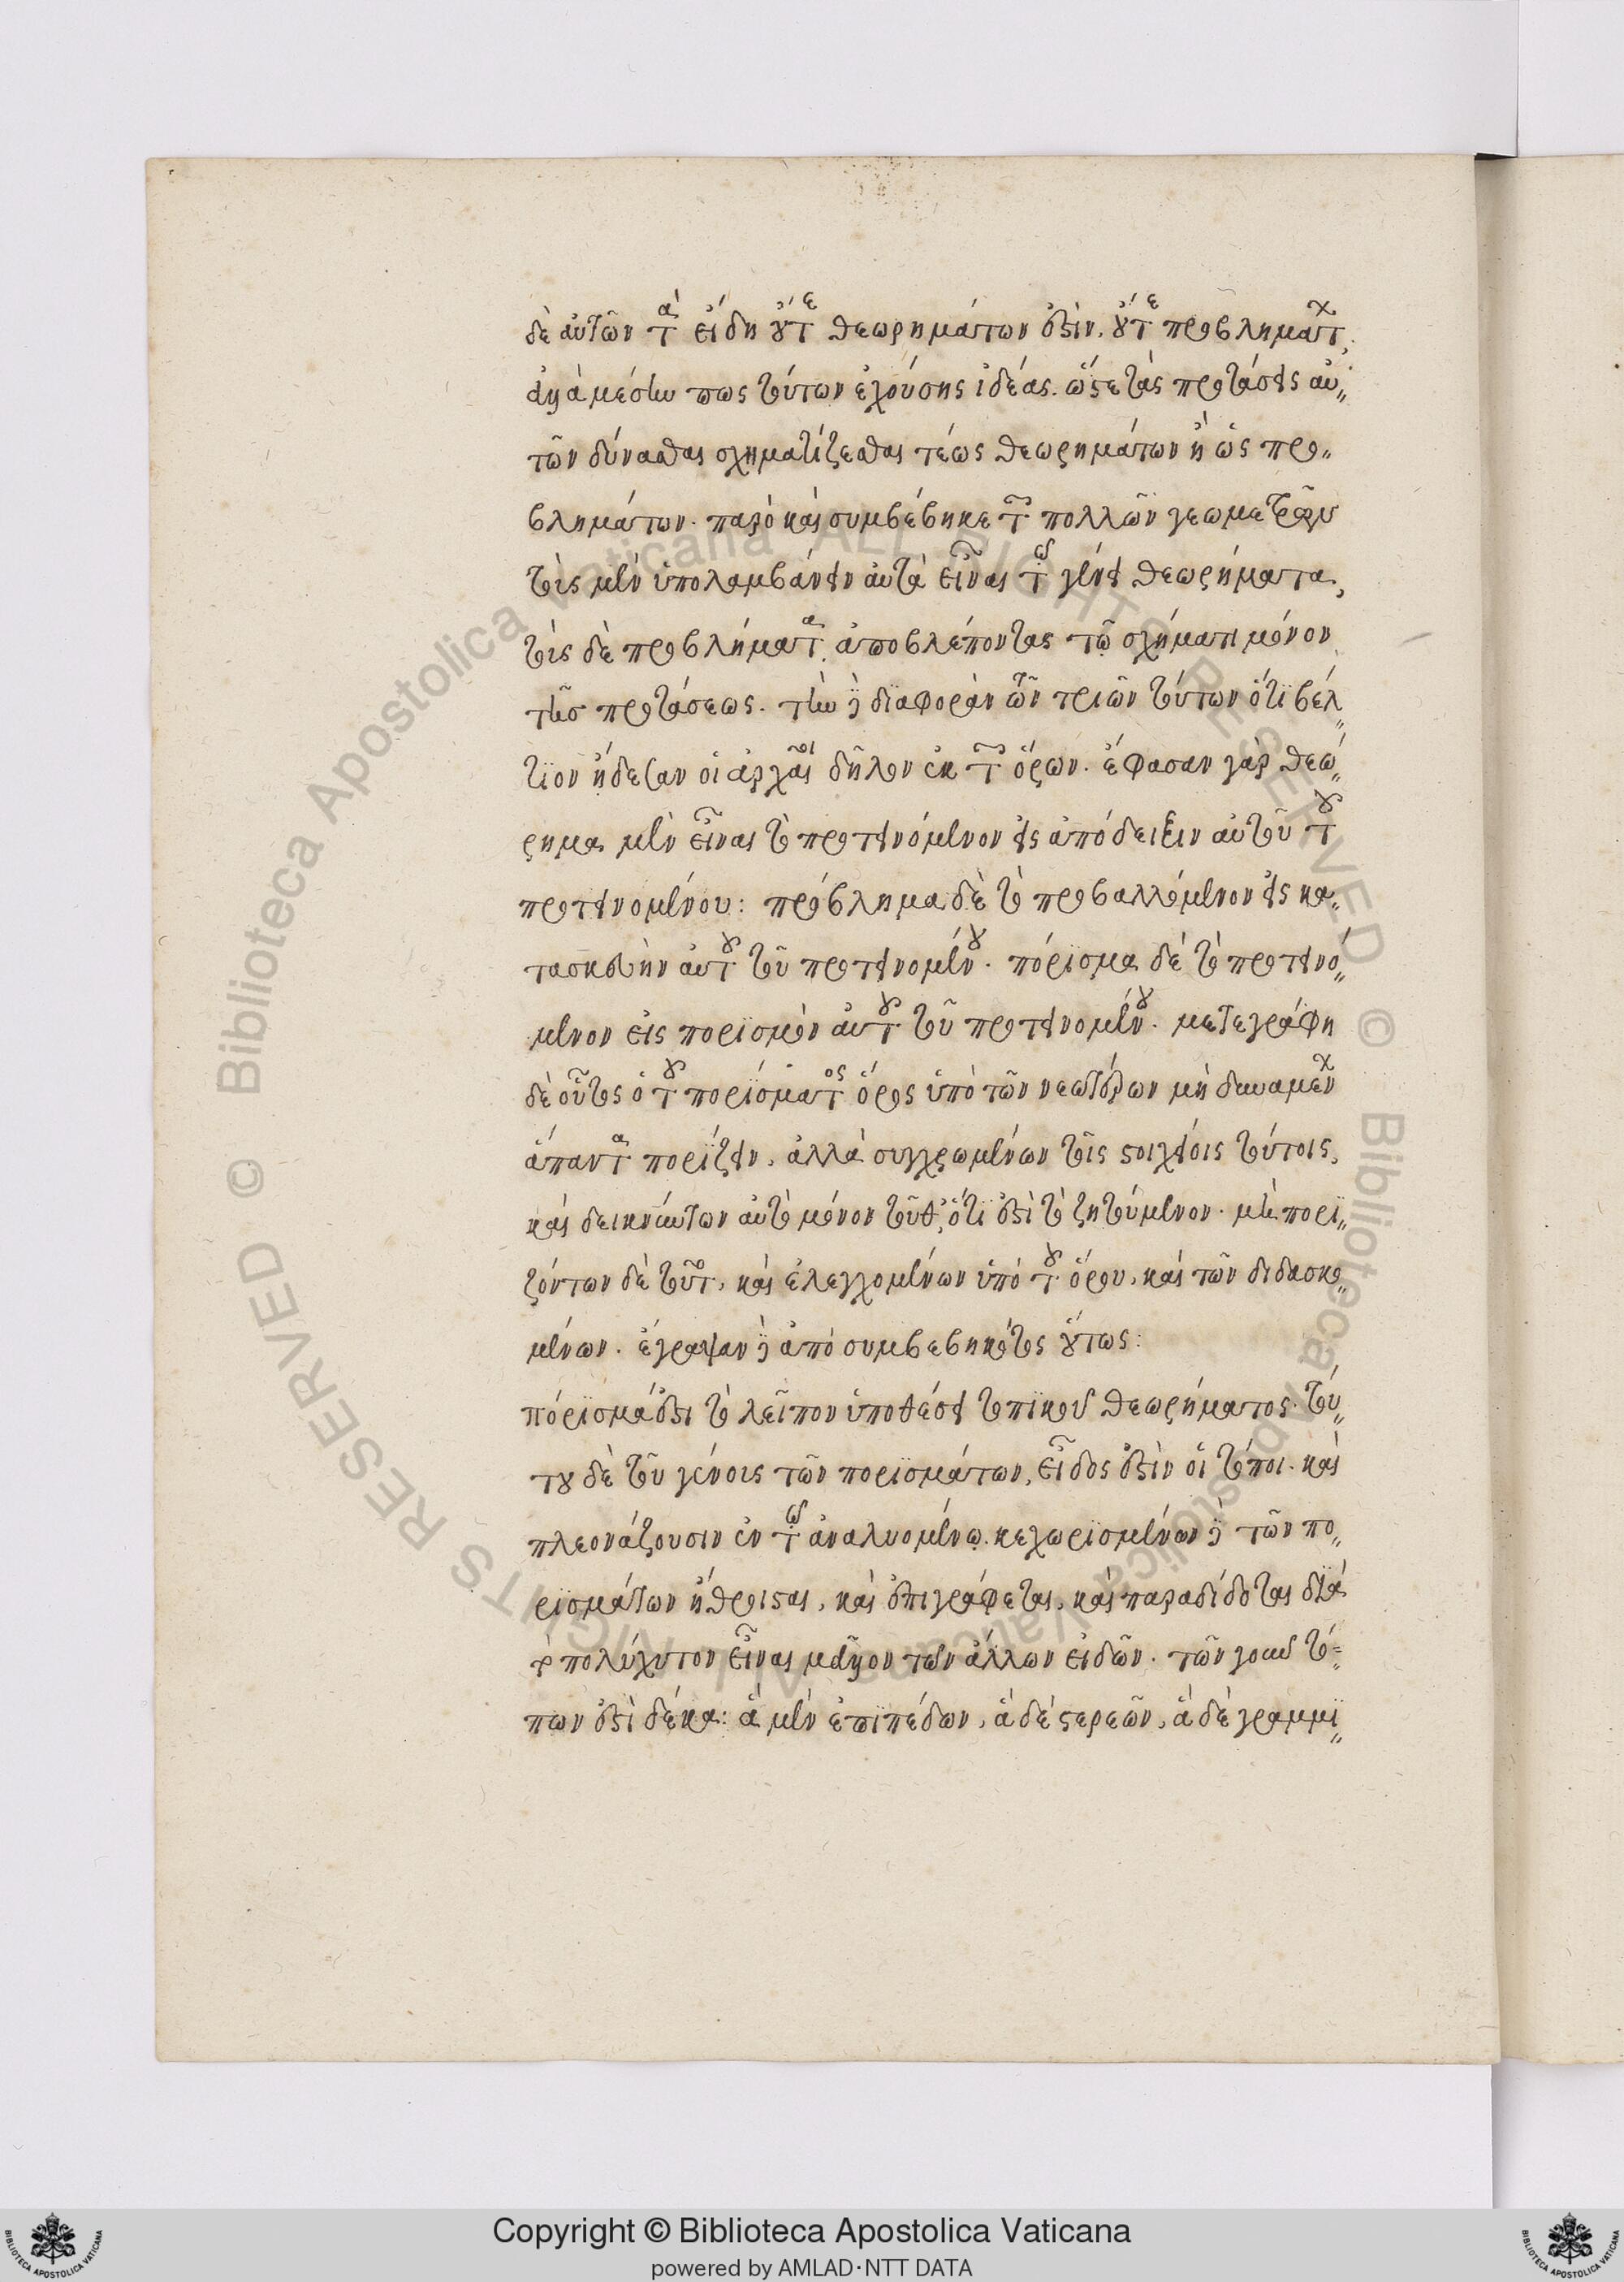 δὲ αὐτῶν τὰ εἴδη οὔτε θεωρημάτων ἐστὶν, οὔτε προβλημάτων,
ἀλλὰ μέσην πως τούτων ἐχούσης ἰδέας. ὥστε τὰς προτάσεις αὐ〃
τῶν δύνασθαι σχηματίζεσθαι τέως θεωρημάτων ἢ ὡς προ〃
βλημάτων. παρὸ καὶ συμβέβηκε τῶν πολλῶν γεωμετρῶν
τοὺς μὲν ὑπολαμβάνειν αὐτὰ εἶναι τῷ γένει θεωρήματα,
τοὺς δὲ προβλήματα, ἀποβλέποντας τῷ σχήματι μόνον
τῆς προτάσεως. τὴν δὲ διαφορὰν τῶν τριῶν τούτων ὅτι βέλ〃
τιον ᾔδεσαν οἱ ἀρχαῖοι δῆλον ἐκ τῶν ὅρων. ἔφασαν γὰρ θεώ〃
ρημα μὲν εἶναι τὸ προτεινόμενον εἰς ἀπόδειξιν αὐτοῦ τοῦ
προτεινομένου: πρόβλημα δὲ τὸ προβαλλόμενον εἰς κα〃
τασκευὴν αὐτοῦ τοῦ προτεινομένου. πόρισμα δὲ τὸ προτεινό〃
μενον εἰς πορισμὸν αὐτοῦ τοῦ προτεινομένου. μετεγράφη
δὲ οὗτος ὁ τοῦ πορίσματος ὅρος ὑπὸ τῶν νεωτέρων μὴ δυναμένων
ἅπαντα πορίζειν, ἀλλὰ συγχρωμένων τοῖς στοιχείοις τούτοις,
καὶ δεικνύντων αὐτὸ μόνον τοῦθ', ὅτι ἐστὶ τὸ ζητούμενον. μὴ πορι〃
ζόντων δὲ τοῦτο, καὶ ἐλεγχομένων ὑπὸ τοῦ ὅρου, καὶ τῶν διδασκο〃
μένων. ἔγραψαν δὲ ἀπὸ συμβεβηκότος οὕτως:
πόρισμά ἐστι τὸ λεῖπον ὑποθέσει τοπικοῦ θεωρήματος. τού〃
του δὲ τοῦ γένους τῶν πορισμάτων, εἶδος ἐστὶν οἱ τόποι. καὶ
πλεονάζουσιν ἐν τῷ ἀναλυομένῳ. κεχωρισμένων δὲ τῶν πο〃
ρισμάτων ἤθροισται, καὶ ἐπιγράφεται, καὶ παραδίδοται διὰ
τὸ πολύχυτον εἶναι μᾶλλον τῶν ἄλλων εἰδῶν. τῶν γοῦν τό〃
πων ἐστὶ δέκα: ἃ μὲν ἐπιπέδων, ἃ δὲ στερεῶν, ἃ δὲ γραμμι〃
© Biblioteca Apostolica Vaticana ALL RIGHTS RESERVED © Biblioteca Apostolica Vaticana ALL RIGHTS RESERVED
Copyright © Biblioteca Apostolica Vaticana
powered by AMLAD·NTT DATA
BIBLIOTECA APOSTOLICA VATICANA
BIBLIOTECA APOSTOLICA VATICANA